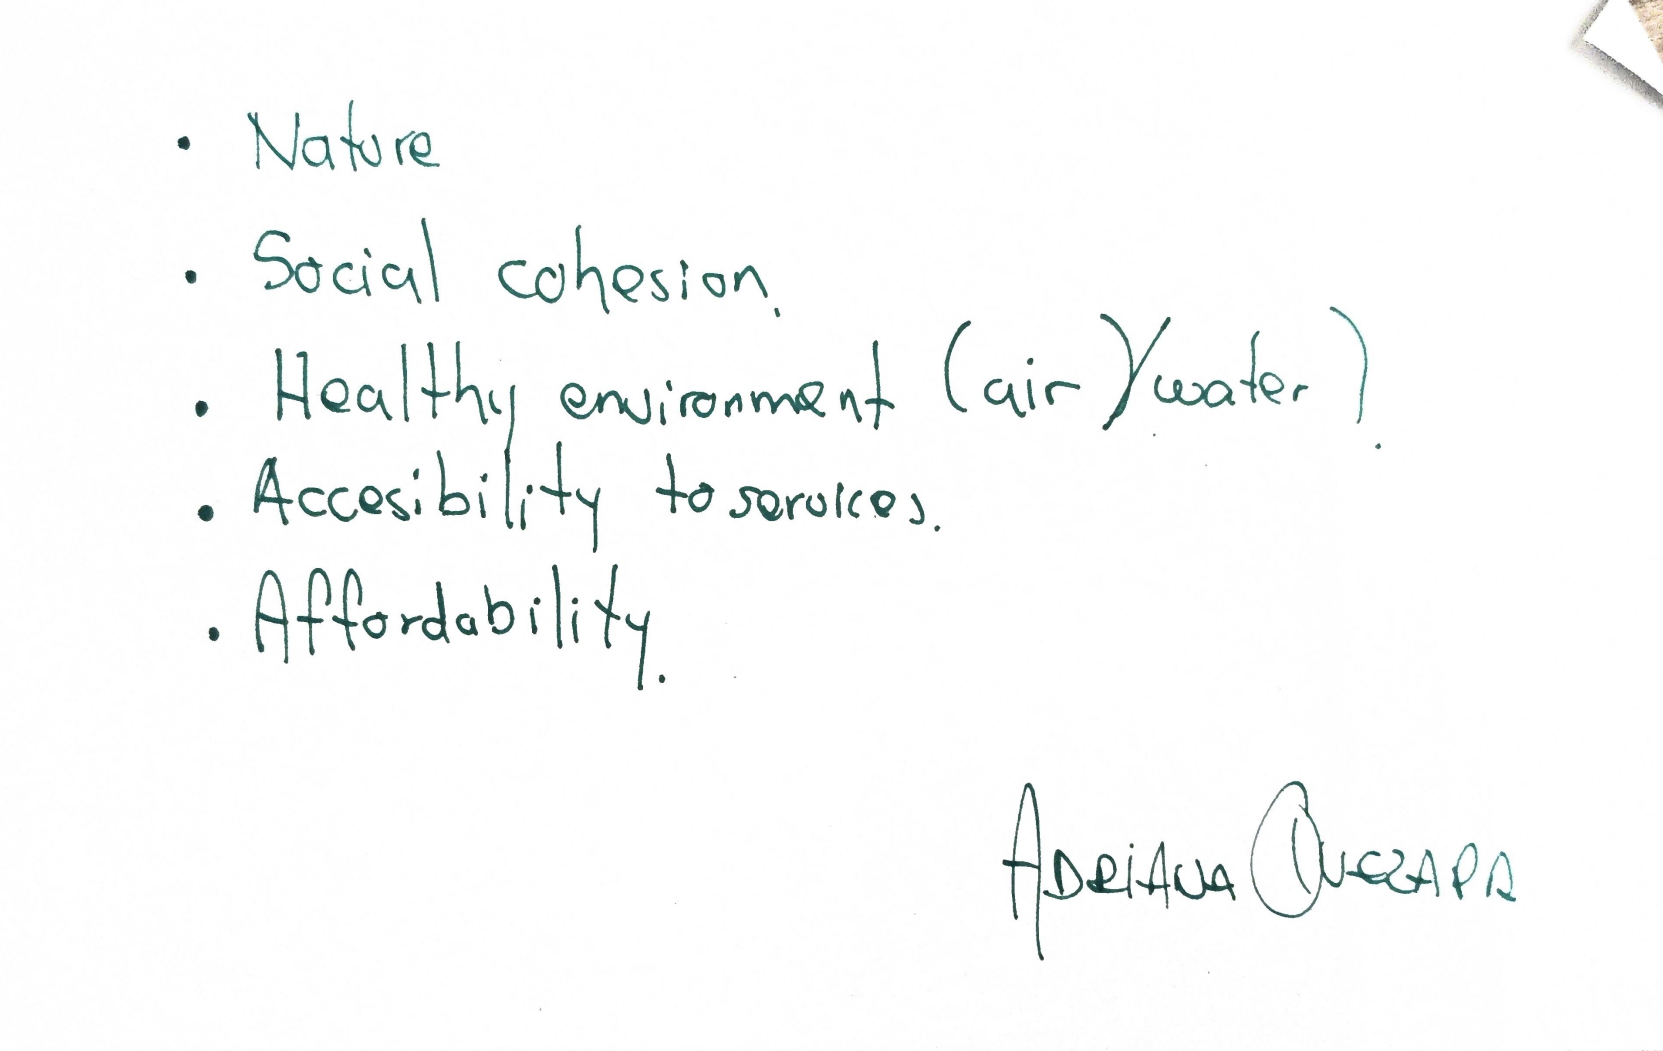 • Nature
• Social cohesion.
• Healthy environment (air)/water).
• Accesibility to services.
• Affordability.
ADRIANA QUEZADA